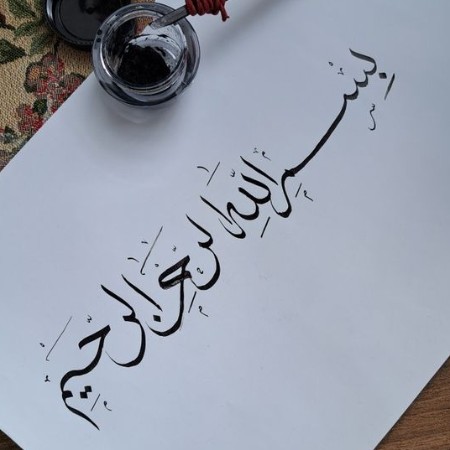 بِسْمِ اللهِ الرحمنِ الرحيمِ